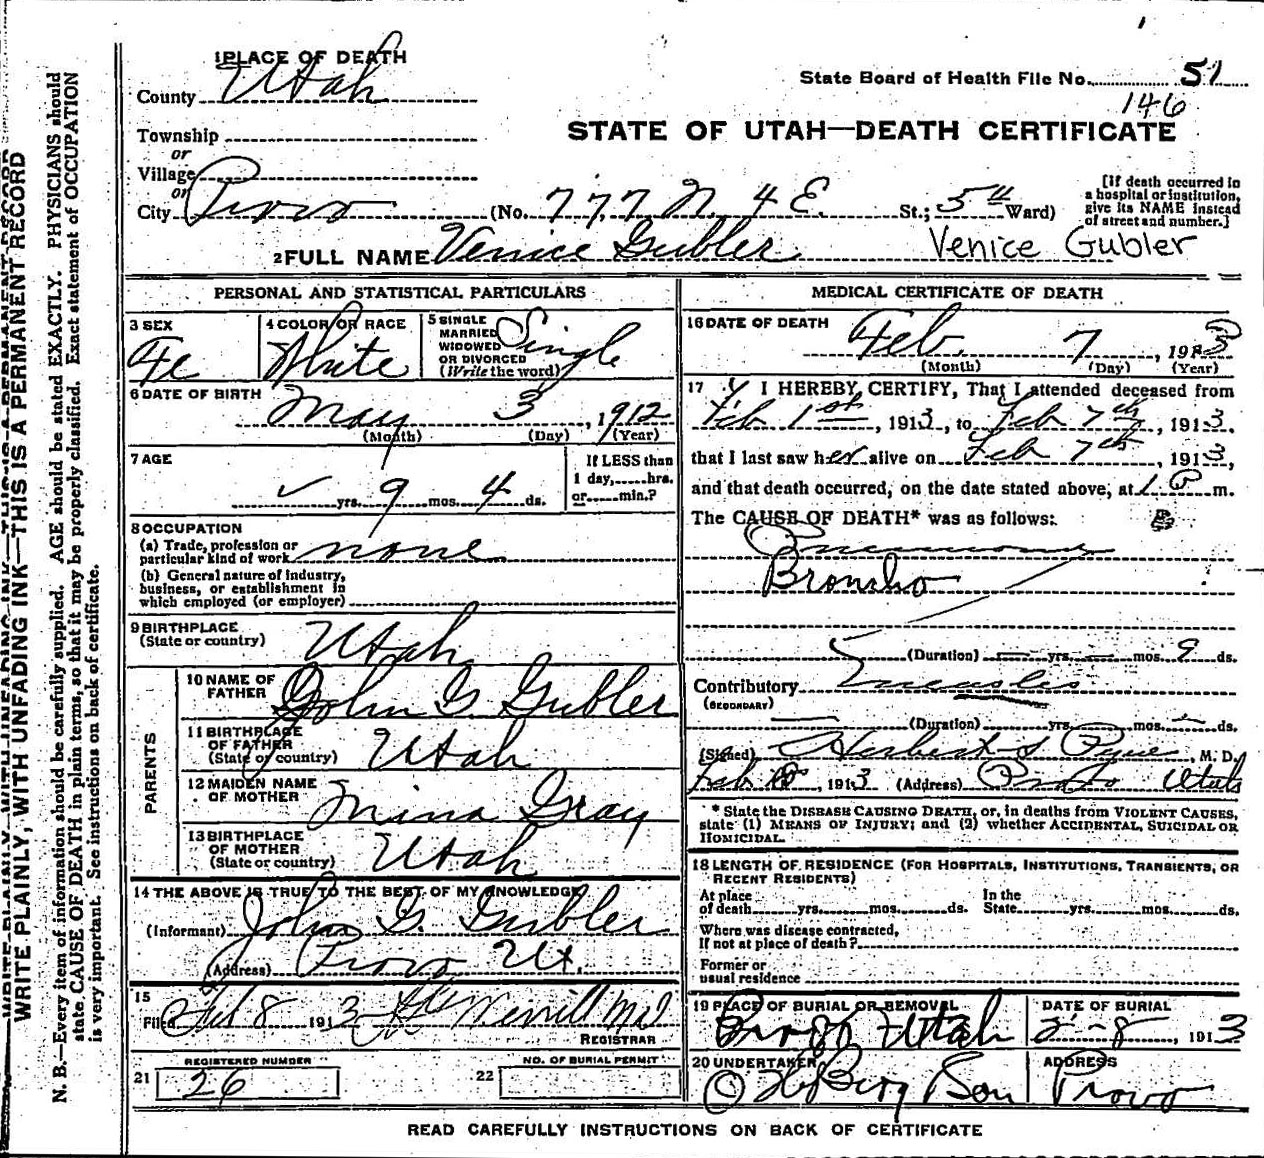 1 PLACE OF DEATH
County Utah
State Board of Health File No. 51
146
Township
or
STATE OF UTAH—DEATH CERTIFICATE
Village
or
City Provo (No. 777 N. 4 E. St.; 5th Ward)
[If death occurred in
a hospital or institution,
give its NAME instead
of street and number.]
2 FULL NAME Venice Gubler Venice Gubler
PERSONAL AND STATISTICAL PARTICULARS
3 SEX
Fe
4 COLOR OR RACE
White
5 SINGLE
MARRIED
WIDOWED
OR DIVORCED
(Write the word)
Single
6 DATE OF BIRTH
May 3, 1912
(Month) (Day) (Year)
7 AGE
✓ yrs. 9 mos. 4 ds.
If LESS than
1 day,......hrs.
or......min.?
8 OCCUPATION
(a) Trade, profession or
particular kind of work none
(b) General nature of industry,
business, or establishment in
which employed (or employer)
9 BIRTHPLACE
(State or country) Utah
PARENTS
10 NAME OF
FATHER John G. Gubler
11 BIRTHPLACE
OF FATHER
(State or country) Utah
12 MAIDEN NAME
OF MOTHER Mina Gray
13 BIRTHPLACE
OF MOTHER
(State or country) Utah
14 THE ABOVE IS TRUE TO THE BEST OF MY KNOWLEDGE
(Informant) John G. Gubler
(Address) Provo Ut.
15
Filed Feb 8 1913 Merrill MD
REGISTRAR
REGISTERED NUMBER
21 26
NO. OF BURIAL PERMIT
22
MEDICAL CERTIFICATE OF DEATH
16 DATE OF DEATH
Feb. 7, 1913
(Month) (Day) (Year)
17 I HEREBY CERTIFY, That I attended deceased from
Feb 1st, 1913, to Feb 7th, 1913,
that I last saw her alive on Feb 7th, 1913,
and that death occurred, on the date stated above, at 1 P m.
The CAUSE OF DEATH* was as follows:
Pneumonia
Broncho
(Duration) — yrs. — mos. 9 ds.
Contributory Measles
(SECONDARY)
(Duration) yrs. mos. ds.
(Signed) Herbert S Pyne, M. D.
Feb 10, 1913 (Address) Provo Utah
* State the DISEASE CAUSING DEATH, or, in deaths from VIOLENT CAUSES,
state (1) MEANS OF INJURY; and (2) whether ACCIDENTAL, SUICIDAL OR
HOMICIDAL.
18 LENGTH OF RESIDENCE (FOR HOSPITALS, INSTITUTIONS, TRANSIENTS, OR
RECENT RESIDENTS)
At place
of death......yrs......mos......ds.
In the
State......yrs......mos......ds.
Where was disease contracted,
If not at place of death?
Former or
usual residence
19 PLACE OF BURIAL OR REMOVAL
Provo Utah
DATE OF BURIAL
2-8, 1913
20 UNDERTAKER
Berg Son
ADDRESS
Provo
READ CAREFULLY INSTRUCTIONS ON BACK OF CERTIFICATE
WRITE PLAINLY, WITH UNFADING INK—THIS IS A PERMANENT RECORD
N. B.—Every item of information should be carefully supplied. AGE should be stated EXACTLY. PHYSICIANS should
state CAUSE OF DEATH in plain terms, so that it may be properly classified. Exact statement of OCCUPATION
is very important. See instructions on back of certificate.